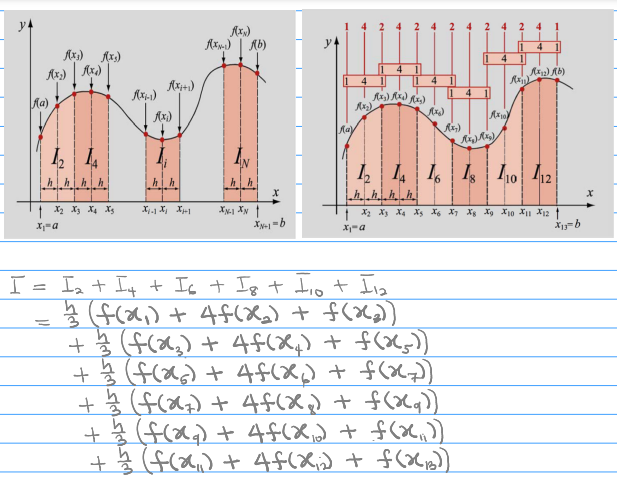 y
f(a)
f(x₂)
f(x₃)
f(x₄)
f(x₅)
f(xᵢ₋₁)
f(xᵢ)
f(xᵢ₊₁)
f(x_{N-1})
f(x_N)
f(b)
I₂ I₄ Iᵢ I_N
h h h h h h h h
x
x₁=a x₂ x₃ x₄ x₅ xᵢ₋₁ xᵢ xᵢ₊₁ x_{N-1} x_N x_{N+1}=b
1 4 2 4 2 4 2 4 2 4 2 4 1
y
1 4 1
1 4 1
1 4 1
1 4 1
1 4 1
1 4 1
f(a)
f(x₂)
f(x₃)
f(x₄)
f(x₅)
f(x₆)
f(x₇)
f(x₈)
f(x₉)
f(x₁₀)
f(x₁₁)
f(x₁₂)
f(b)
I₂ I₄ I₆ I₈ I₁₀ I₁₂
h h h h
x
x₁=a x₂ x₃ x₄ x₅ x₆ x₇ x₈ x₉ x₁₀ x₁₁ x₁₂ x₁₃=b
I = I₂ + I₄ + I₆ + I₈ + I₁₀ + I₁₂
= h/3 (f(x₁) + 4f(x₂) + f(x₃))
+ h/3 (f(x₃) + 4f(x₄) + f(x₅))
+ h/3 (f(x₅) + 4f(x₆) + f(x₇))
+ h/3 (f(x₇) + 4f(x₈) + f(x₉))
+ h/3 (f(x₉) + 4f(x₁₀) + f(x₁₁))
+ h/3 (f(x₁₁) + 4f(x₁₂) + f(x₁₃))